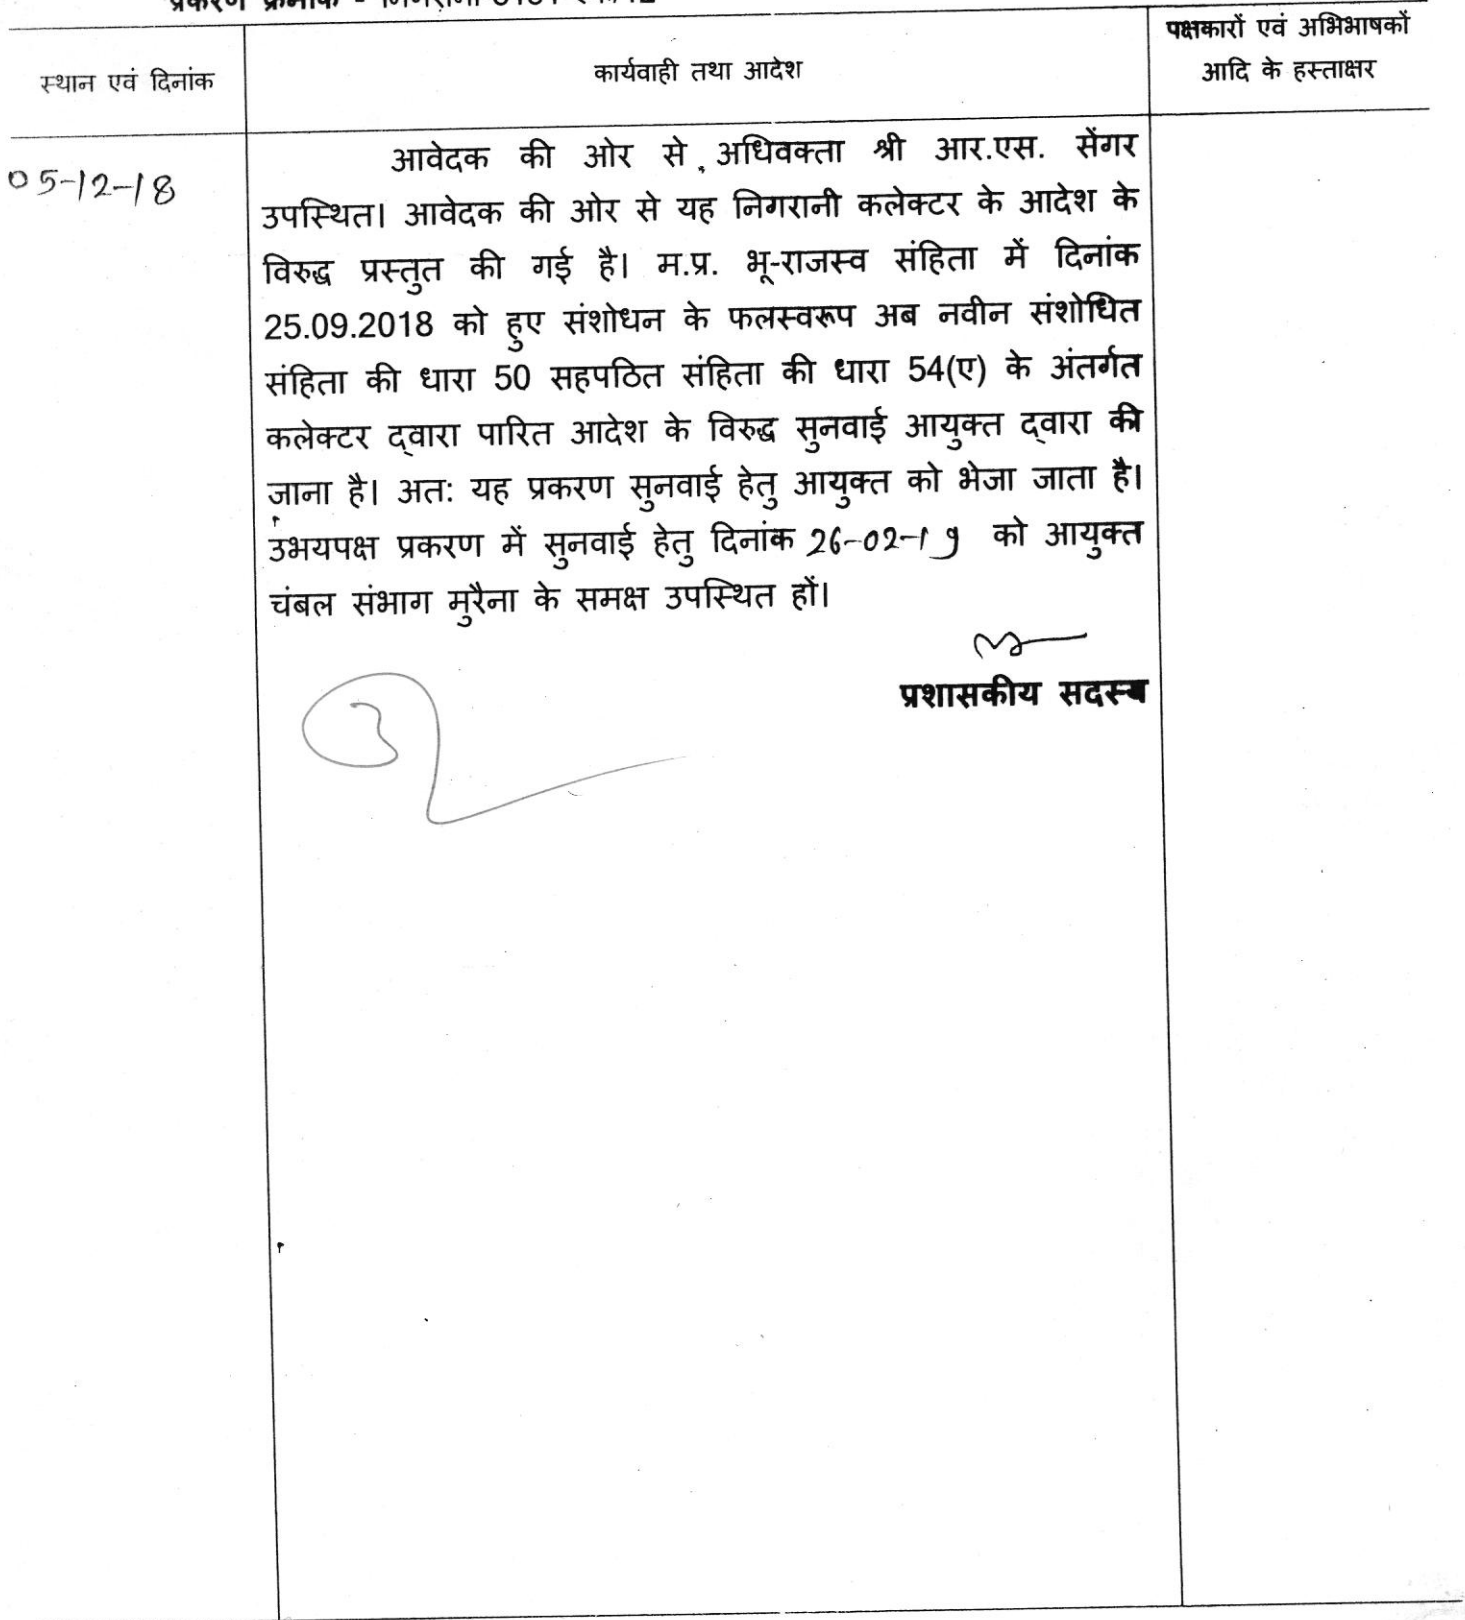 प्रकरण क्रमांक - निगरानी
स्थान एवं दिनांक
कार्यवाही तथा आदेश
पक्षकारों एवं अभिभाषकों
आदि के हस्ताक्षर
05-12-18
आवेदक की ओर से अधिवक्ता श्री आर.एस. सेंगर
उपस्थित। आवेदक की ओर से यह निगरानी कलेक्टर के आदेश के
विरुद्ध प्रस्तुत की गई है। म.प्र. भू-राजस्व संहिता में दिनांक
25.09.2018 को हुए संशोधन के फलस्वरूप अब नवीन संशोधित
संहिता की धारा 50 सहपठित संहिता की धारा 54(ए) के अंतर्गत
कलेक्टर द्वारा पारित आदेश के विरुद्ध सुनवाई आयुक्त द्वारा की
जाना है। अतः यह प्रकरण सुनवाई हेतु आयुक्त को भेजा जाता है।
उभयपक्ष प्रकरण में सुनवाई हेतु दिनांक 26-02-19 को आयुक्त
चंबल संभाग मुरैना के समक्ष उपस्थित हों।
प्रशासकीय सदस्य